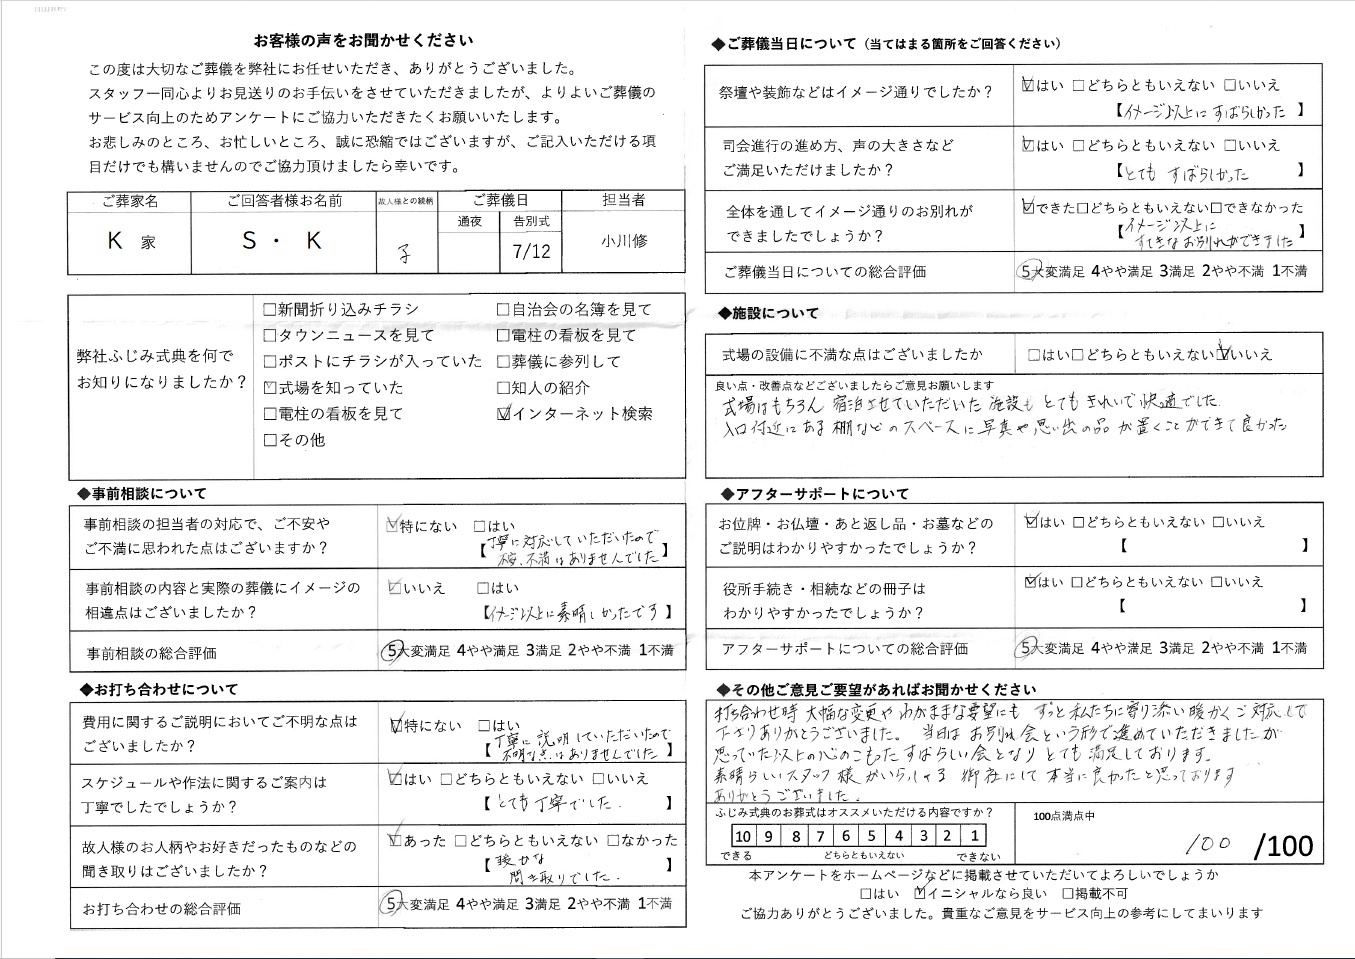 お客様の声をお聞かせください
この度は大切なご葬儀を弊社にお任せいただき、ありがとうございました。
スタッフ一同心よりお見送りのお手伝いをさせていただきましたが、よりよいご葬儀の
サービス向上のためアンケートにご協力いただきたくお願いいたします。
お悲しみのところ、お忙しいところ、誠に恐縮ではございますが、ご記入いただける項
目だけでも構いませんのでご協力頂けましたら幸いです。
ご葬家名 ご回答者様お名前 故人様との続柄 ご葬儀日 担当者
通夜 告別式
K 家 S・K 子 7/12 小川修
弊社ふじみ式典を何で
お知りになりましたか？
□新聞折り込みチラシ □自治会の名簿を見て
□タウンニュースを見て □電柱の看板を見て
□ポストにチラシが入っていた □葬儀に参列して
☑式場を知っていた □知人の紹介
□電柱の看板を見て ☑インターネット検索
□その他
◆事前相談について
事前相談の担当者の対応で、ご不安や
ご不満に思われた点はございますか？
☑特にない □はい
【丁寧に対応していただいたので
不安、不満はありませんでした】
事前相談の内容と実際の葬儀にイメージの
相違点はございましたか？
☑いいえ □はい
【イメージ以上に素晴しかったです】
事前相談の総合評価 5大変満足 4やや満足 3満足 2やや不満 1不満
◆お打ち合わせについて
費用に関するご説明においてご不明な点は
ございましたか？
☑特にない □はい
【丁寧に説明していただいたので
不明な点はありませんでした】
スケジュールや作法に関するご案内は
丁寧でしたでしょうか？
☑はい □どちらともいえない □いいえ
【とても丁寧でした.】
故人様のお人柄やお好きだったものなどの
聞き取りはございましたか？
☑あった □どちらともいえない □なかった
【暖かな
聞き取りでした.】
お打ち合わせの総合評価 5大変満足 4やや満足 3満足 2やや不満 1不満
◆ご葬儀当日について（当てはまる箇所をご回答ください）
祭壇や装飾などはイメージ通りでしたか？
☑はい □どちらともいえない □いいえ
【イメージ以上にすばらしかった】
司会進行の進め方、声の大きさなど
ご満足いただけましたか？
☑はい □どちらともいえない □いいえ
【とても すばらしかった】
全体を通してイメージ通りのお別れが
できましたでしょうか？
☑できた□どちらともいえない□できなかった
【イメージ以上に
すてきなお別れができました】
ご葬儀当日についての総合評価 5大変満足 4やや満足 3満足 2やや不満 1不満
◆施設について
式場の設備に不満な点はございましたか □はい□どちらともいえない☑いいえ
良い点・改善点などございましたらご意見お願いします
式場はもちろん 宿泊させていただいた 施設も とてもきれいで快適でした.
入口付近にある棚などのスペースに写真や思い出の品が置くことができて良かった
◆アフターサポートについて
お位牌・お仏壇・あと返し品・お墓などの
ご説明はわかりやすかったでしょうか？
☑はい □どちらともいえない □いいえ
【 】
役所手続き・相続などの冊子は
わかりやすかったでしょうか？
☑はい □どちらともいえない □いいえ
【 】
アフターサポートについての総合評価 5大変満足 4やや満足 3満足 2やや不満 1不満
◆その他ご意見ご要望があればお聞かせください
打ち合わせ時 大幅な変更や わがままな要望にも ずっと私たちに寄り添い暖かくご対応して
下さりありがとうございました。 当日は お別れ会という形で進めていただきましたが
思っていた以上の心のこもった すばらしい会となり とても満足しております.
素晴らしいスタッフ様がいらっしゃる 御社にして 本当に良かったと思っております
ありがとうございました。
ふじみ式典のお葬式はオススメいただける内容ですか？
10 9 8 7 6 5 4 3 2 1
できる どちらともいえない できない
100点満点中
100 /100
本アンケートをホームページなどに掲載させていただいてよろしいでしょうか
□はい ☑イニシャルなら良い □掲載不可
ご協力ありがとうございました。貴重なご意見をサービス向上の参考にしてまいります